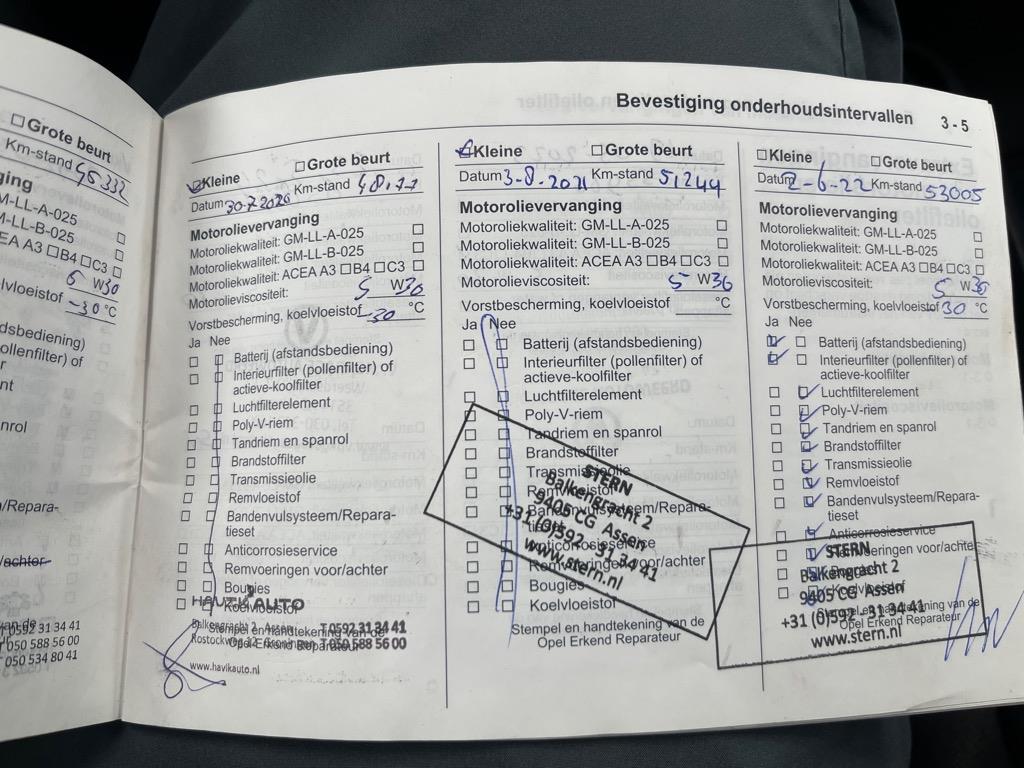 Bevestiging onderhoudsintervallen 3 - 5
Grote beurt
Km-stand 45332
M-LL-A-025
M-LL-B-025
ACEA A3 B4 C3
W30
lvloeistof -30 °C
dsbediening)
ollenfilter) of
nt
nrol
n/Repara-
achter
van de
T 0592 31 34 41
T 050 588 56 00
T 050 534 80 41
Kleine Grote beurt
Datum Km-stand
Motorolievervanging
Motoroliekwaliteit: GM-LL-A-025
Motoroliekwaliteit: GM-LL-B-025
Motoroliekwaliteit: ACEA A3 B4 C3
Motorolieviscositeit: 5 W30
Vorstbescherming, koelvloeistof -30 °C
Ja Nee
Batterij (afstandsbediening)
Interieurfilter (pollenfilter) of
actieve-koolfilter
Luchtfilterelement
Poly-V-riem
Tandriem en spanrol
Brandstoffilter
Transmissieolie
Remvloeistof
Bandenvulsysteem/Repara-
tieset
Anticorrosieservice
Remvoeringen voor/achter
Bougies
Koelvloeistof
HAVIK AUTO
Balkengracht 2 - Assen T 0592 31 34 41
T 050 588 56 00
Stempel en handtekening van de
Opel Erkend Reparateur
www.havikauto.nl
Kleine Grote beurt
Datum 3-8-2021 Km-stand 51244
Motorolievervanging
Motoroliekwaliteit: GM-LL-A-025
Motoroliekwaliteit: GM-LL-B-025
Motoroliekwaliteit: ACEA A3 B4 C3
Motorolieviscositeit: 5 W30
Vorstbescherming, koelvloeistof °C
Ja Nee
Batterij (afstandsbediening)
Interieurfilter (pollenfilter) of
actieve-koolfilter
Luchtfilterelement
Poly-V-riem
Tandriem en spanrol
Brandstoffilter
Transmissieolie
Remvloeistof
Bandenvulsysteem/Repara-
tieset
Anticorrosieservice
Remvoeringen voor/achter
Bougies
Koelvloeistof
STERN
Balkengracht 2
9405 CG Assen
+31 (0)592 - 31 34 41
www.stern.nl
Stempel en handtekening van de
Opel Erkend Reparateur
Kleine Grote beurt
Datum 2-6-22 Km-stand 53005
Motorolievervanging
Motoroliekwaliteit: GM-LL-A-025
Motoroliekwaliteit: GM-LL-B-025
Motoroliekwaliteit: ACEA A3 B4 C3
Motorolieviscositeit: 5 W30
Vorstbescherming, koelvloeistof 30 °C
Ja Nee
Batterij (afstandsbediening)
Interieurfilter (pollenfilter) of
actieve-koolfilter
Luchtfilterelement
Poly-V-riem
Tandriem en spanrol
Brandstoffilter
Transmissieolie
Remvloeistof
Bandenvulsysteem/Repara-
tieset
Anticorrosieservice
Remvoeringen voor/achter
Bougies
Koelvloeistof
STERN
Balkengracht 2
9405 CG Assen
+31 (0)592 - 31 34 41
www.stern.nl
Stempel en handtekening van de
Opel Erkend Reparateur